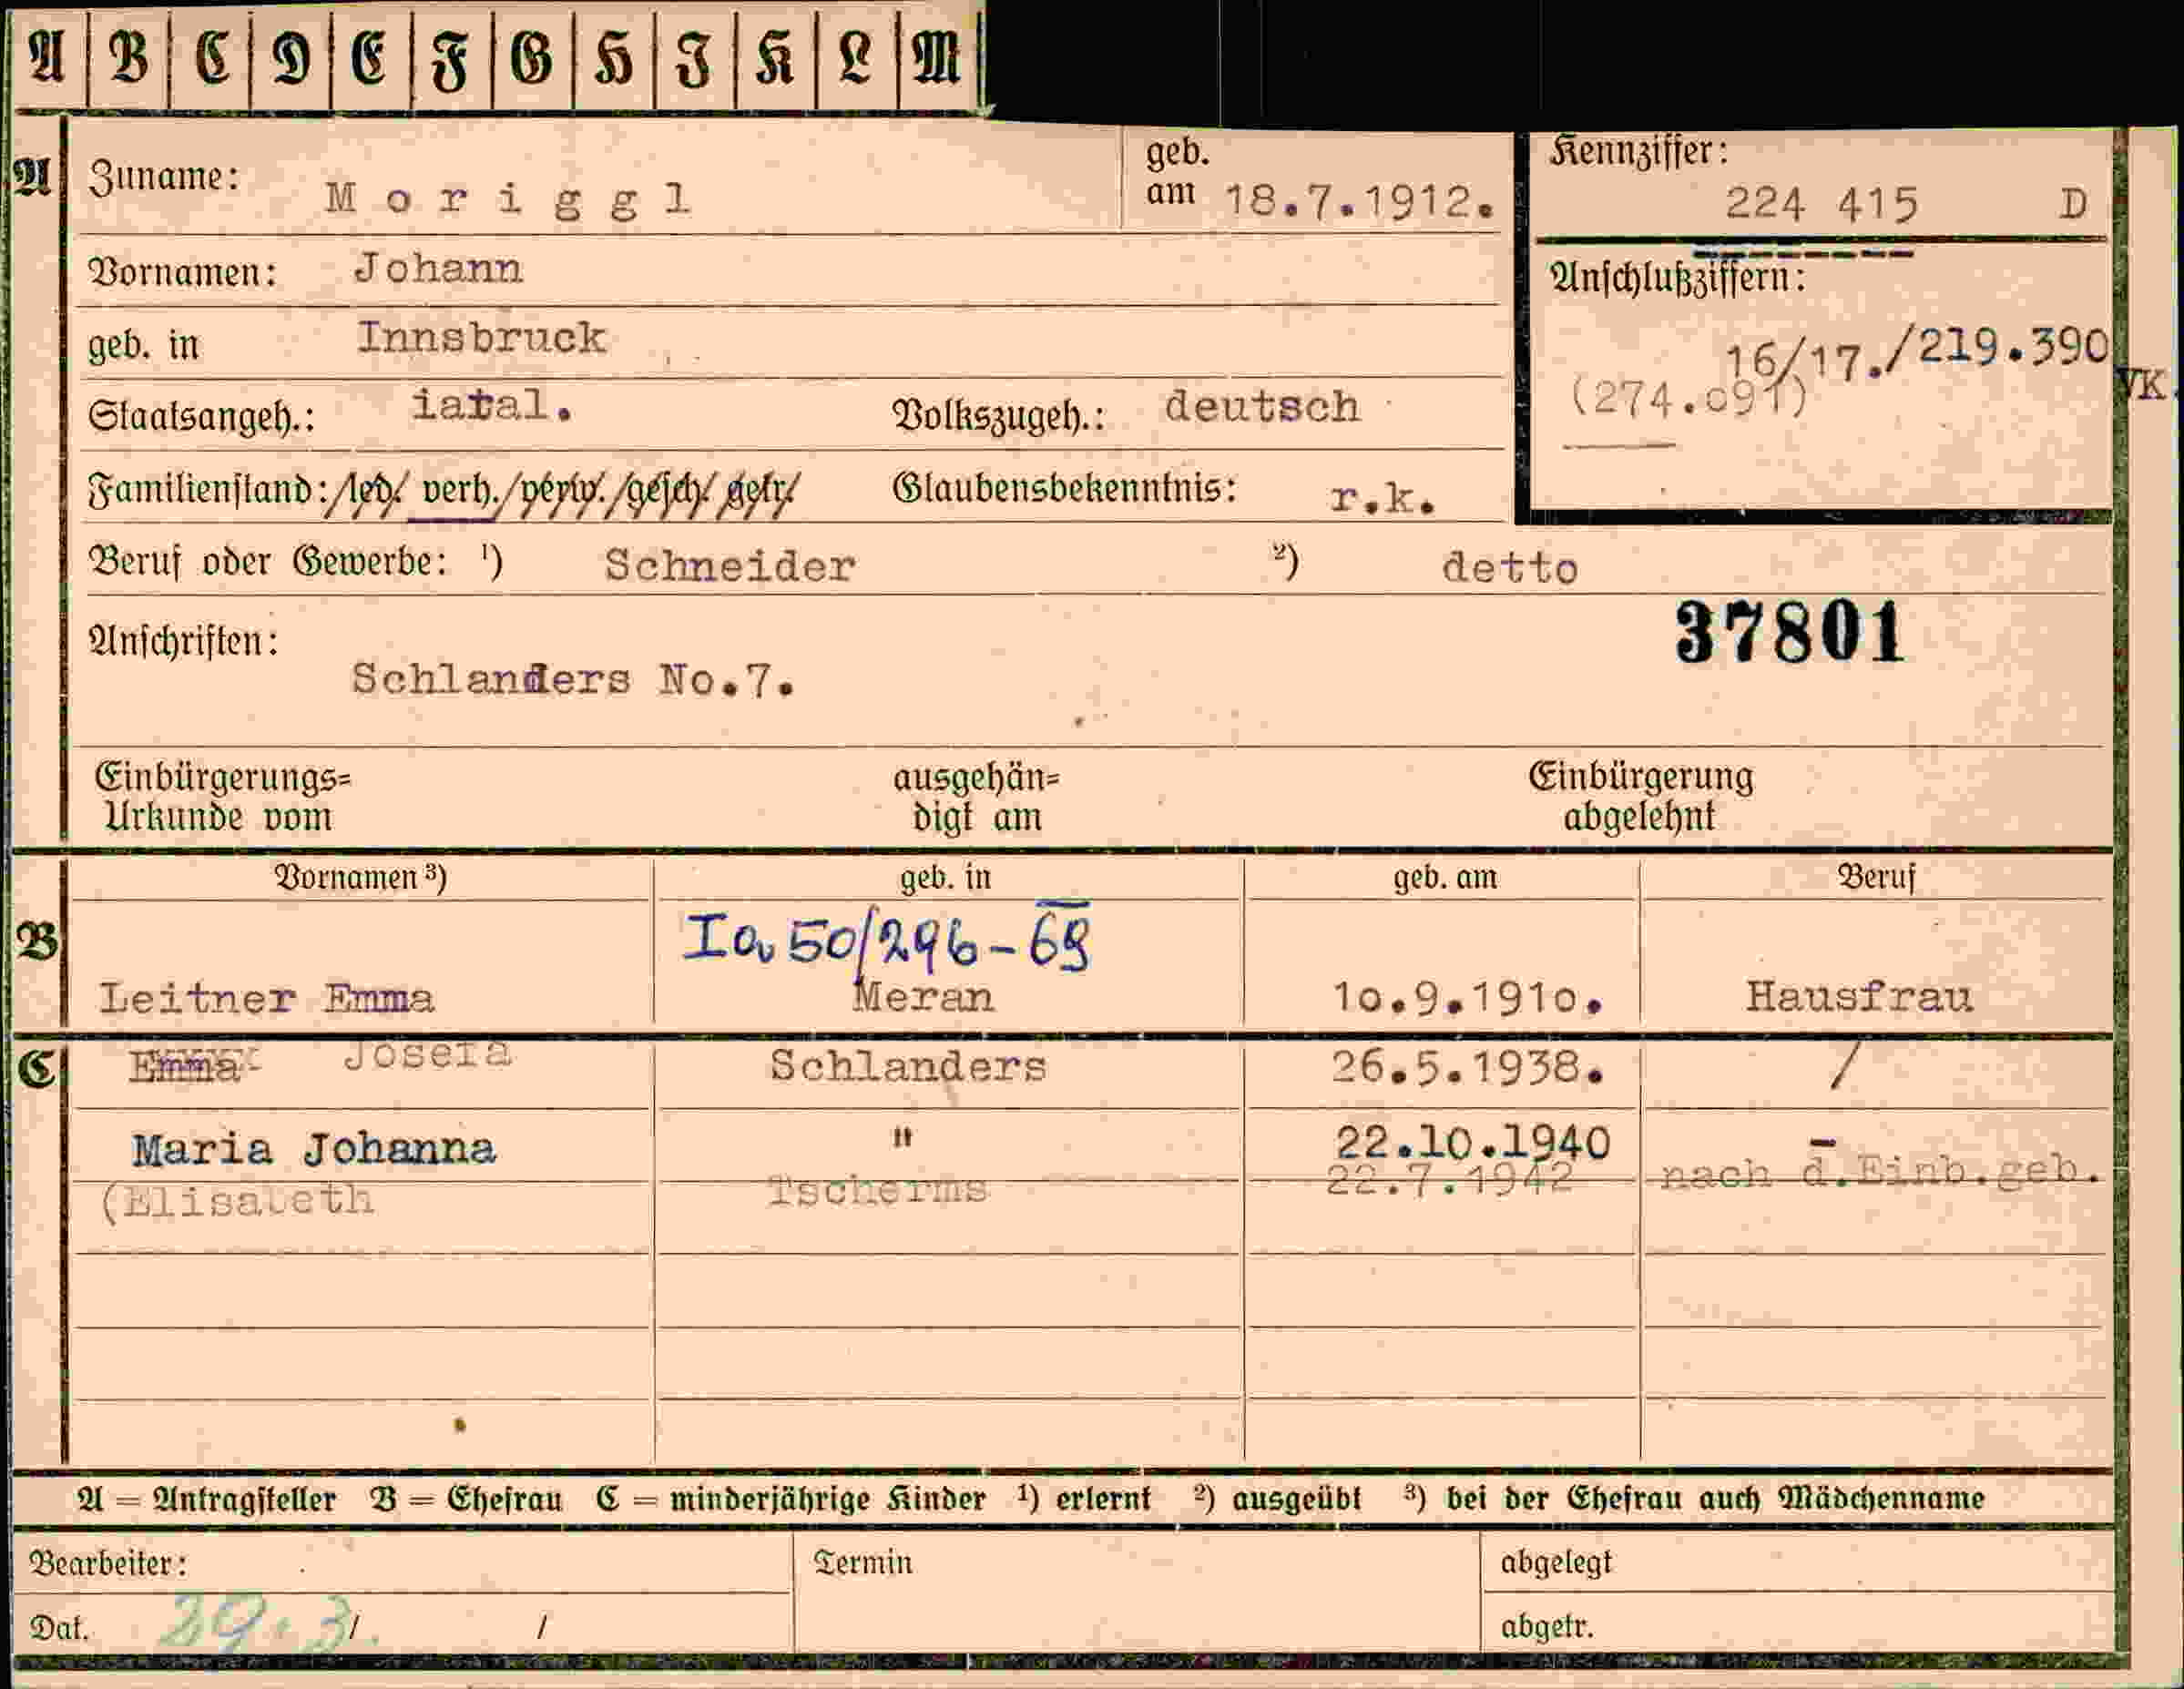 A B C D E F G H I K L M
A Zuname: Moriggl geb. am 18.7.1912. Kennziffer: 224 415 D
Vornamen: Johann Anschlußziffern:
geb. in Innsbruck 16/17./219.390
Staatsangeh.: iatal. Volkszugeh.: deutsch (274.091) VK.
Familienstand: /led./ verh./verw./gesch/ getr/ Glaubensbekenntnis: r.k.
Beruf oder Gewerbe: ¹) Schneider ²) detto
37801
Anschriften:
Schlanders No.7.
Einbürgerungs= ausgehän= Einbürgerung
Urkunde vom digt am abgelehnt
Vornamen ³) geb. in geb. am Beruf
B Ia 50/296-69
Leitner Emma Meran 10.9.1910. Hausfrau
C Emma Josefa Schlanders 26.5.1938. /
Maria Johanna " 22.10.1940 -
(Elisabeth Tscherms 22.7.1942 nach d.Einb.geb.
A = Antragsteller B = Ehefrau C = minderjährige Kinder ¹) erlernt ²) ausgeübt ³) bei der Ehefrau auch Mädchenname
Bearbeiter: Termin abgelegt
Dat. 29.3/ / abgetr.